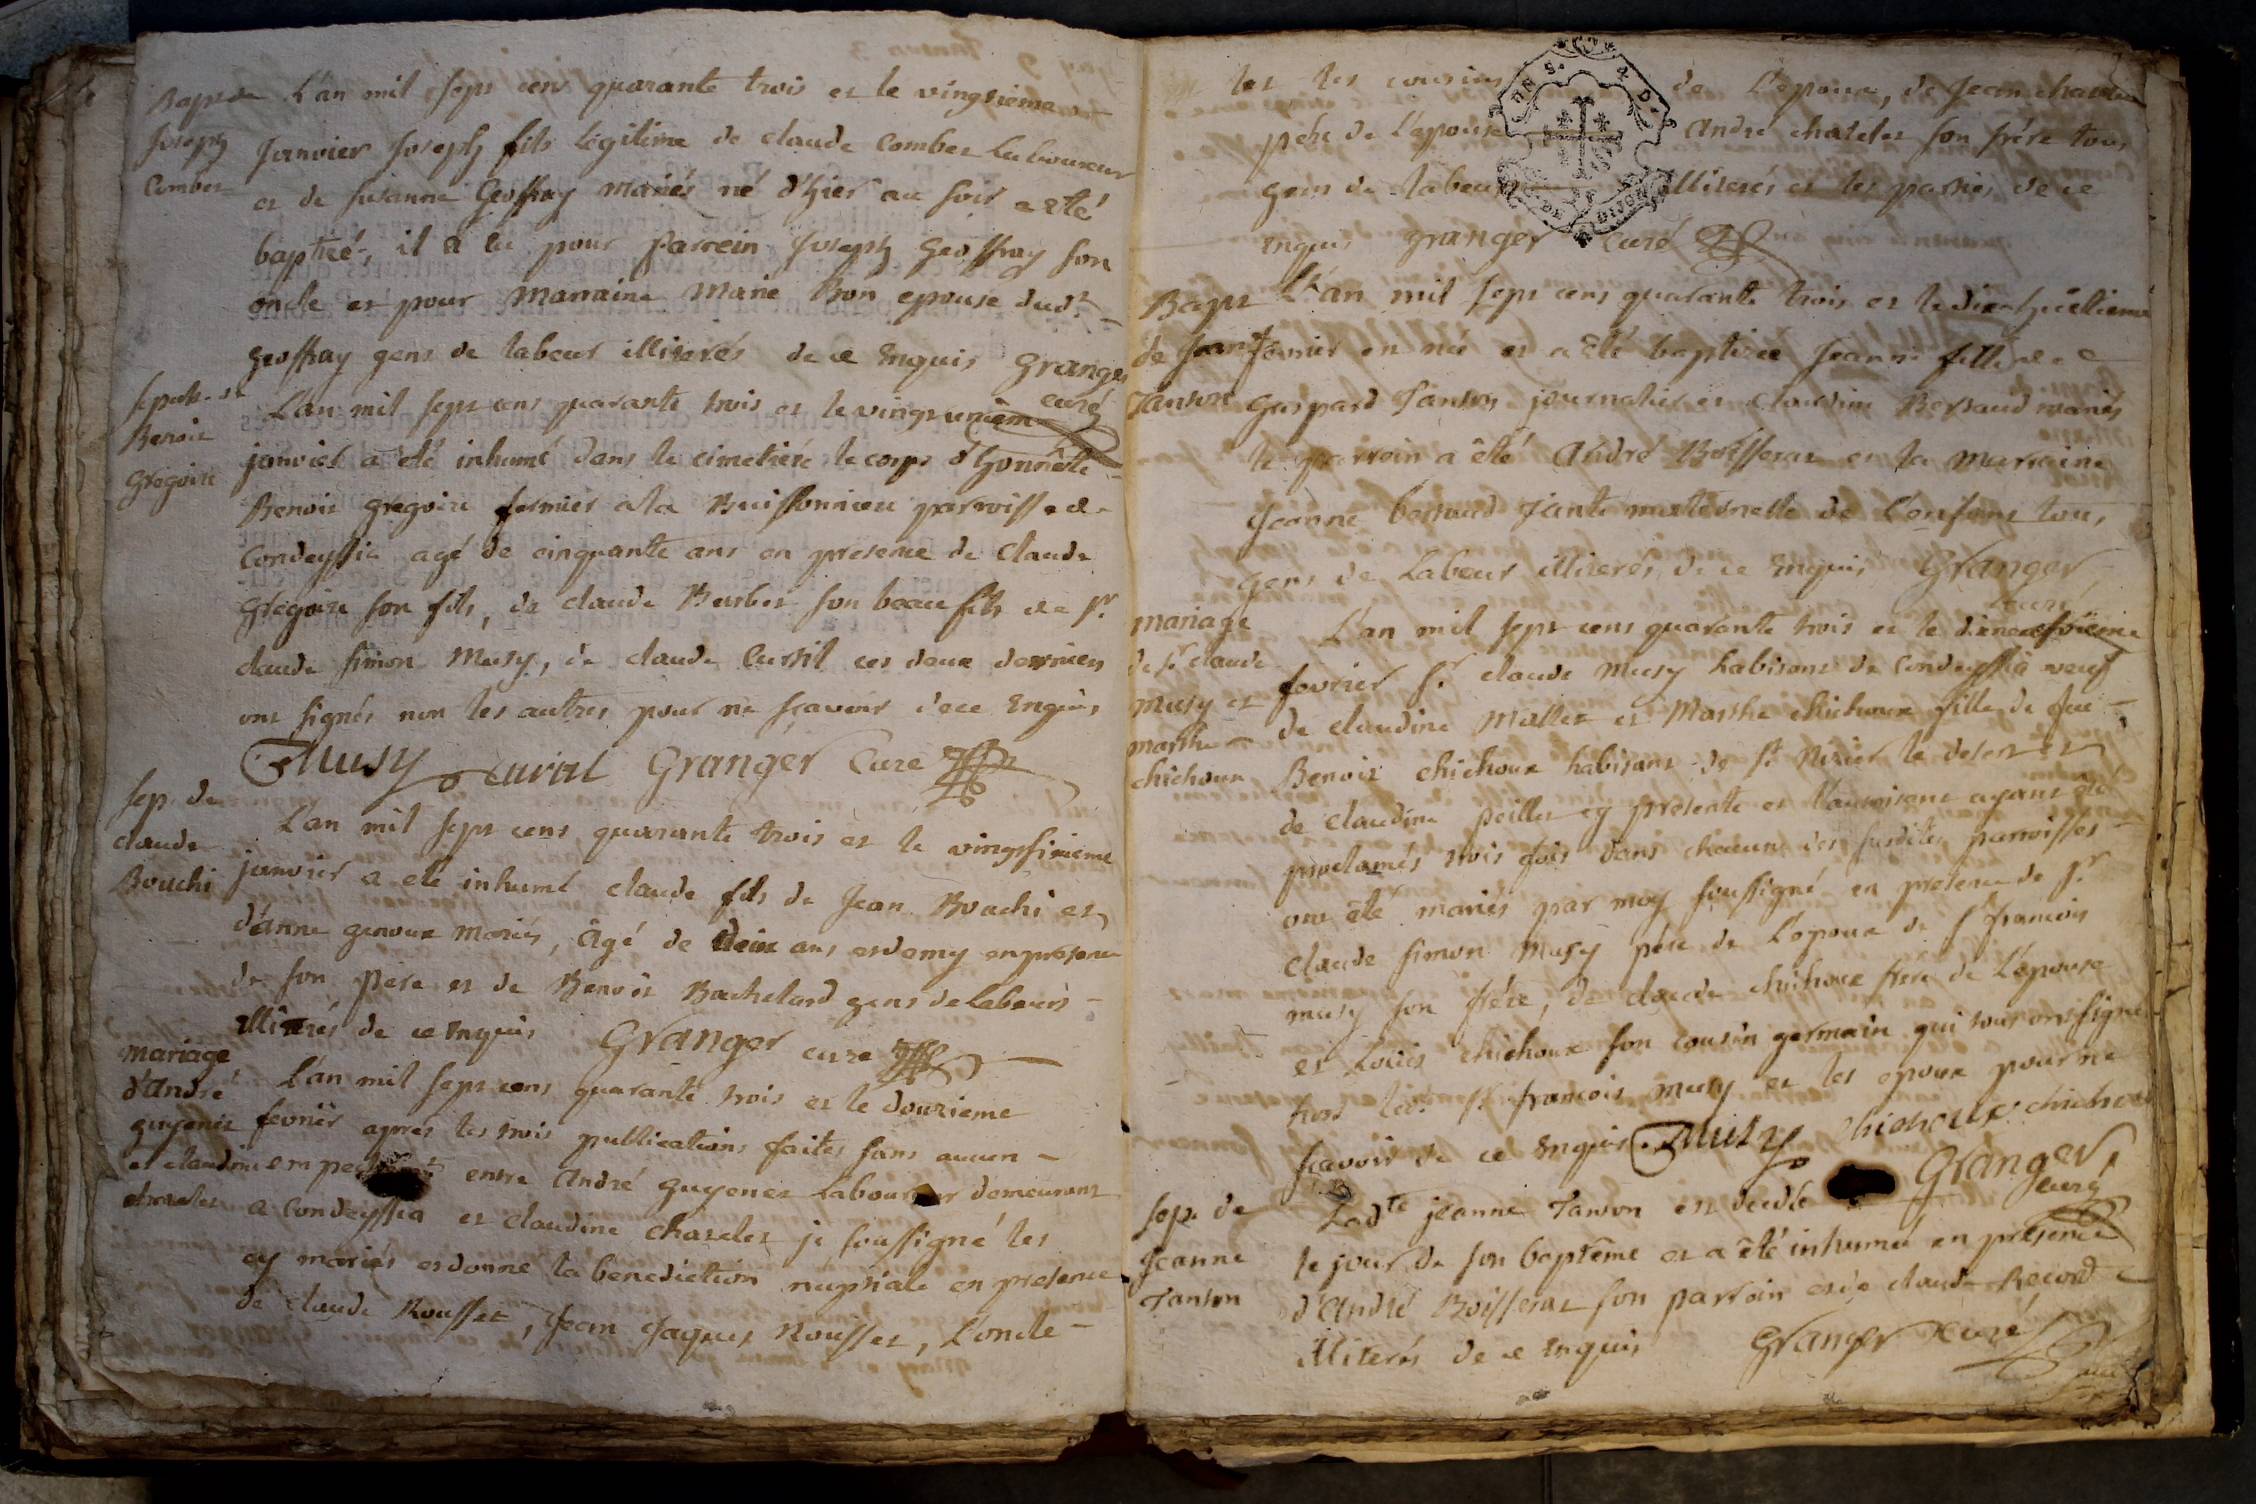 Bapt de
Joseph
Combet
L'an mil sept cens quarante trois et le vingtieme
Janvier Joseph fils légitime de claude Combet Laboureur
et de susanne Geoffray mariés né d'hjer au soir a eté
baptizé, il a eu pour parrein Joseph Geoffray son
oncle et pour marraine marie Bon epouse dudt
Geoffray gens de labeur illiterés de ce Enquis Granger
curé
sepult. de
Benoit
Gregoire
L'an mil sept cens quarante trois et le vingt unieme
janvier a eté inhumé dans le cimetiére le corps d'honnête
Benoit gregoire fermier a la Buissonniere parroisse de
Condeyssia agé de cinquante ans en presence de Claude
Gregoire son fils, de claude Barbet son beau fils de sr
claude simon Musy, de claude Curtil ces deux derniers
ont signés non les autres pour ne sçavoir de ce Enquis
Musy Curtil Granger Curé
sep. de
claude
Bouchi
L'an mil sept cens quarante trois et le vingt sixieme
janvier a eté inhumé claude fils de Jean Bouchi et
d'anne genoux mariés, âgé de deux ans et demy en presence
de son Pére et de Benoit Bachelard gens de Labeurs
illiterés de ce Enquis Granger curé
mariage
d'André
guyenet
et claudine
chatelet
L'an mil sept cens quarante trois et le douzieme
fevrier apres les trois publications faites sans aucun
empechement entre André guyenet Laboureur demeurant
a Condeyssia et claudine chatelet je soussigné les
ay mariés et donné la benediction nuptiale en presence
de claude Rousset, Jean Jaques Rousset, L'oncle
et les cousins de L'epoux, de Jean chatelet
pére de L'epouse André chatelet son frére tous
gens de labeur illiterés et les parties de ce
Enquis Granger Curé
Bapt
de Jeanne
Janton
L'an mil sept cens quarante trois et le dix huitieme
fevrier en née et a êté baptizee Jeanne fille de
Gaspard Janton journalier et claudine Bernaud mariés
le parroin a êté André Boisserat et la marraine
Jeanne bernaud Tante maternelle de L'enfant tous
gens de Labeur illiterés de ce Enquis Granger
curé
mariage
de sr claude
musy et
marthe
chichoux
L'an mil sept cens quarante trois et le dixneufvieme
fevrier sr claude Musy habitant de Condeyssia veuf
de claudine Mallet et Marthe chichoux fille de feu
Benoit chichoux habitant de st Nizier le desert et
de claudine peillet cy presente et l'autorisant ayant eté
proclamés trois fois dans chacune des susdites parroisses
ont êté mariés par moy soussigné en presence de sr
claude simon Musy pére de L'epoux de sr francois
musy son frére, de claude chichoux frére de L'epouse
et Loüis chichoux son cousin germain qui tous ont signé
hors led. sr francois musy et les epoux pour ne
sçavoir de ce Enquis Musy chichoux chichoux
Granger
curé
sep. de
Jeanne
Janton
Ladte jeanne Janton est decedée
le jour de son baptême et a êté inhumée en presence
d'André Boisserat son parroin et de claude Record
illiterés de ce Enquis Granger Curé